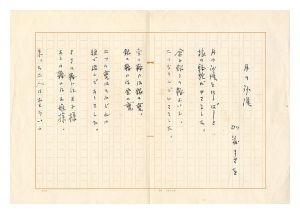 月の沙漠
加藤まさを
月の沙漠をはるばると
旅の駱駝がゆきました。
金と銀との鞍おいて、
二つならんでゆきました。
金の鞍には銀の甕、
銀の鞍には金の甕。
二つの甕はそれぞれに
紐で結んでありました。
さきの鞍には王子様
あとの鞍にはお姫様。